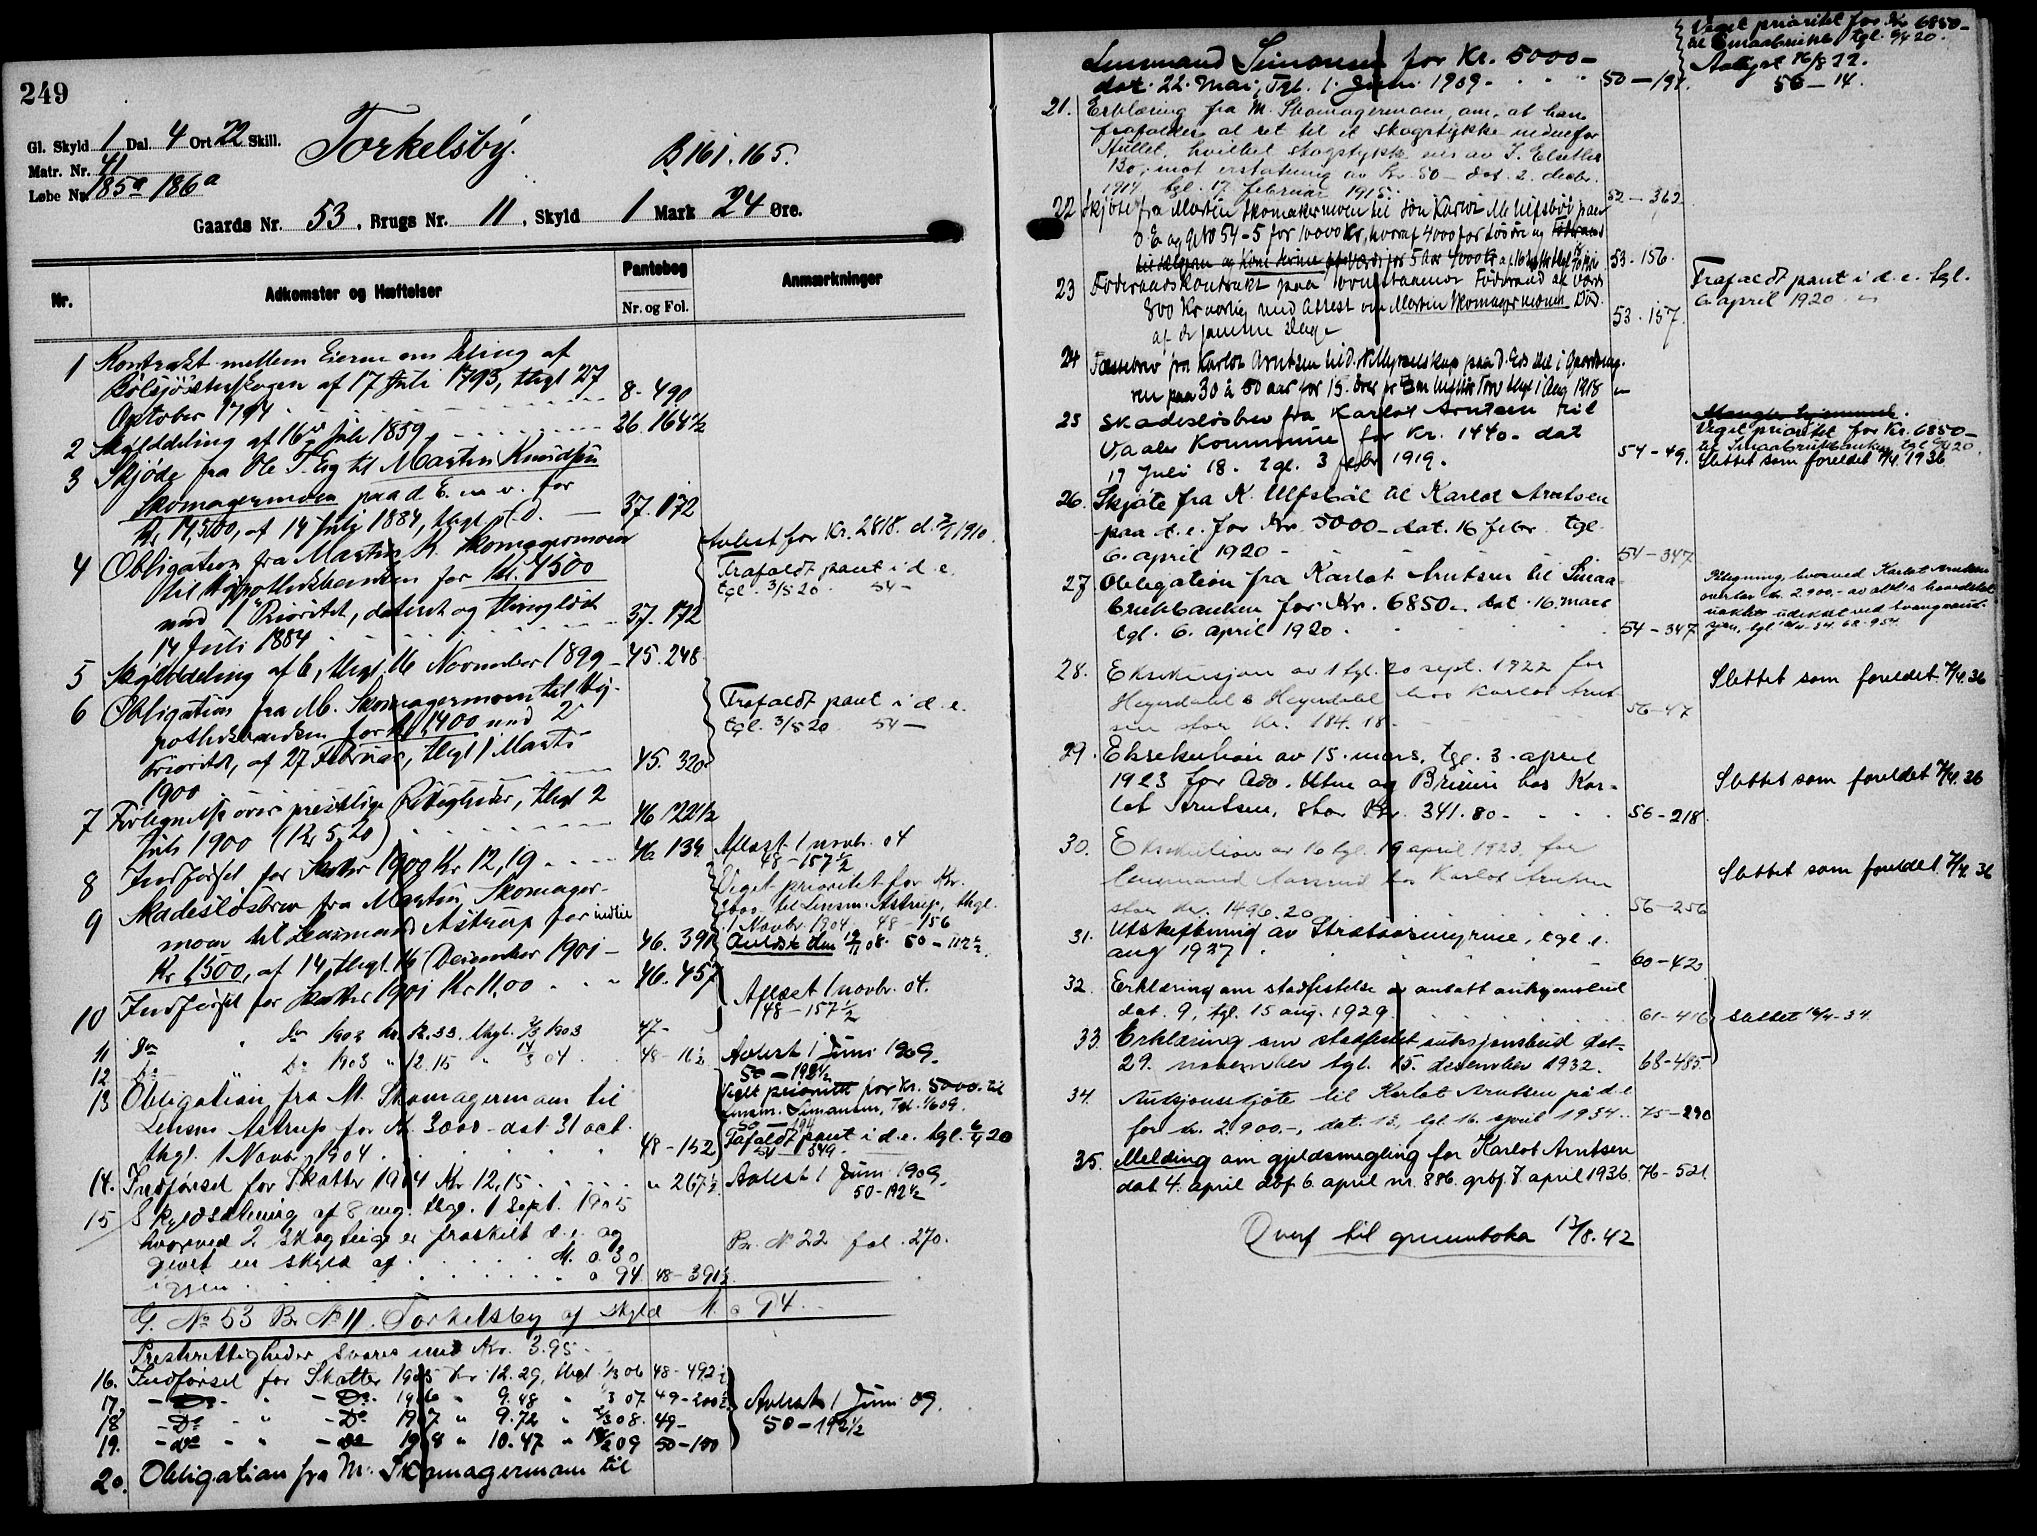 249
Gl. Skyld 1 Dal. 4 Ort 22 Skill.
Matr. Nr. 41
Løbe Nr. 185a 186a
Torkelsby.
B 161. 165.
Gaards Nr. 53, Brugs Nr. 11, Skyld 1 Mark 24 Øre.
Nr.
Adkomster og Hæftelser
Pantebog
Nr. og Fol.
Anmærkninger
1 Kontrakt mellem Eierne om Deling af
af 17 Juli 1793, thgl 27
October 1794 8-490
2 Skylddeling af 16de Juli 1859 26.164½
3 Skjøde fra Ole T. Eig til Martin Knudsen
Skomagermoen paa d. E. m. v. for
14,500, af 14 Juli 1884, thgl s. D. 37.172
4 Obligation fra Martin K. Skomagermoen
til Hypothekbanken for Kr. 4500
med 1ste Prioritet, dateret og thinglæst
14 Juli 1884 37.172
Avlest for Kr. 2818. d. 1910
Frafaldt pant i d. e.
tgl. 3/5 20 54-
5 Skylddeling af 6, thgl 16 November 1899 45.248
6 Obligation fra M. Skomagermoen til Hy-
pothekbanken for Kr 1,400 med 2
Prioritet, af 27 Februar, thgl 1 Marts
1900 45.320
Frafaldt pant i d. e.
tgl. 3/5 20 54-
7 Forlegnelse over prestlige Rettigheder, thgl 2
Juli 1900 (Kr 5,20) 46 122½
8 Indførsel for Skatter 1900 Kr 12,19 46.134
Aflæst 1 novbr. 04
48-157½
9 Skadesløsbrev fra Martin Skomager-
moen til Lensmand Astrup for indtil
Kr 1500, af 14, thgl. 16 December 1901 46.391
Veget prioritet for Kr.
3000. til Lensm. Astrup, thgl.
1 Novbr. 1904 48-156
Avlæst den 08. 50-112½.
10 Indførsel for Skatter 1901 Kr 11,00 46.457
Aflæst 1 novbr. 04.
48-157½
11 Do " Do 1902 Kr. 12.33. thgl. 1903 47-
12 Do " Do 1903 " 12.15 " 04 48-16½
Avlest 1 Juni 1909.
50-192½
13 Obligation fra M. Skomagermoen til
Lensm Astrup for Kr. 3000- dat 31 oct.
thgl. 1 Novbr 1904 48-152
Veget prioritet for Kr. 5000. til
Lensm. Simonsen, Tgl. 1/6 09.
50-194
Frafaldt pant i d. e. tgl. 6/4 20
54 349.
14. Indførsel for Skatter 1904 Kr 12,15 " 267½
Avlest 1 Juni 1909.
50-192½
15 Skyldsætning af 8 aug. thgl. 1 Sept. 1905
hvorved 2 Skogteige er fraskilt d. e. og
givet en skyld af M. 0.30
igjen 0 94 48-391½
Br. No 22 fol. 270.
G. No 53 Br. No 11. Torkelsby af skyld M. 0 94.
Prestrettigheder svares med Kr. 3.95
16. Indførsel for Skatter 1905 Kr 12.29, thgl 1/3 06 48-492½
17. -Do- " -Do. 1906 " 9.48 " 3 07 49-200½
18 -Do - " -Do 1907 " 9.72 " 2/3 08. 49-
19. -do - " -do 1908 " 10.47 " 09 50-100
Avlest 1 Juni 09.
50-192½
20. Obligation fra M. Skomagermoen til
Lensmand Simonsen for Kr. 5000-
dat. 22. Mai, Tgl. 1. Juni 1909- 50-194.
Veget prioritet for Kr 6850-
til Smaabrukb. tgl. 6/4 20.
Avlyst 16/8 22.
56-14.
21. Erklæring fra M. Skomagermoen om, at han
frafalder al ret til et skogstykke nedenfor
hvilket skogstykke eies av
Bo, mot erstatning av Kr. 50- dat. 2. decbr.
1914, tgl. 17. februar 1915. 52-362
22 Skjøte fra Martin Skomakermoen til Søn Karius M. Ulfsbøl paa
D. E. og GNo 54-5 for 10000 Kr, hvoraf 4000 for Løsøre og
53-156.
23 Føderaadskontrakt paa Føderaad af Værdi
800 Kr aarlig med Attest om Martin Skomagermoens Død.
af do samme Dag 53-157.
Frafaldt pant i d. e. tgl.
6 april 1920
24 Fæstebrev fra Karlot Arntsen til
paa 30 à 50 aar for 15. Øre pr thgl i Aug 1918 "
25 Skadesløsbrev fra Karlot Arntsen til
Vaaler Kommune for Kr. 1440- dat
17 Juli 18. tgl. 3 febr 1919. 54-49.
Mangler hjemmel.
Veget prioritet for Kr. 6850-
til Smaabrukbanken tgl 6/4 20.
Slettet som foreldet 7/4. 1936
26. Skjøte fra K. Ulfsbøl til Karlot Arntsen
paa d. e. for Kr. 5000- dat. 16 febr. tgl.
6. april 1920 - 54-347
27. Obligation fra Karlot Arntsen til Smaa-
brukbanken for Kr. 6850- dat. 16. mars
tgl. 6. april 1920. 54-347
hvorved Karlot Arntsen
overtar kr. 2.900.- av
udekket ved tvangsauk-
sjon, tgl 16/4-34. 68-954
28. Eksekusjon av 1 tgl. 20 sept. 1922 for
Heyerdahl & Heyerdahl hos Karlot Arnt-
sen stor Kr. 184.18- 56-47
Slettet som foreldet. 7/4.36
29. Eksekution av 15. mars, tgl. 3. april
1923 for Adv. Utne og Bruun hos Kar-
lot Arntsen, stor Kr. 341.80- 56-218.
Slettet som foreldet 7/4.36
30. Eksekution av 16 tgl. 19 april 1923 for
lensmand Aarsrud hos Karlot Arntsen
stor Kr. 1496.20 56-256
Slettet som foreldet. 7/4.36
31. Utskiftning av tgl 1.
aug 1927 60-420
32. Erklæring om stadfestelse av antatt auksjonsbud
dat. 9, tgl. 15 aug. 1929 61-416
slettet 16/4-34.
33. Erklæring om stadfestet auksjonsbud dat-
29. november tgl. 15. desember 1932. 68-485.
34. Auksjonsskjøte til Karlot Arntsen på d e
for kr. 2.900.-, dat. 13, tgl. 16. april 1934 75-290
35. Melding om gjeldsmegling for Karlot Arntsen
dat. 4. april dbf. 6. april nr. 886. grbf. 7. april 1936. 76-521.
Overf. til grunnboka 17/8.42